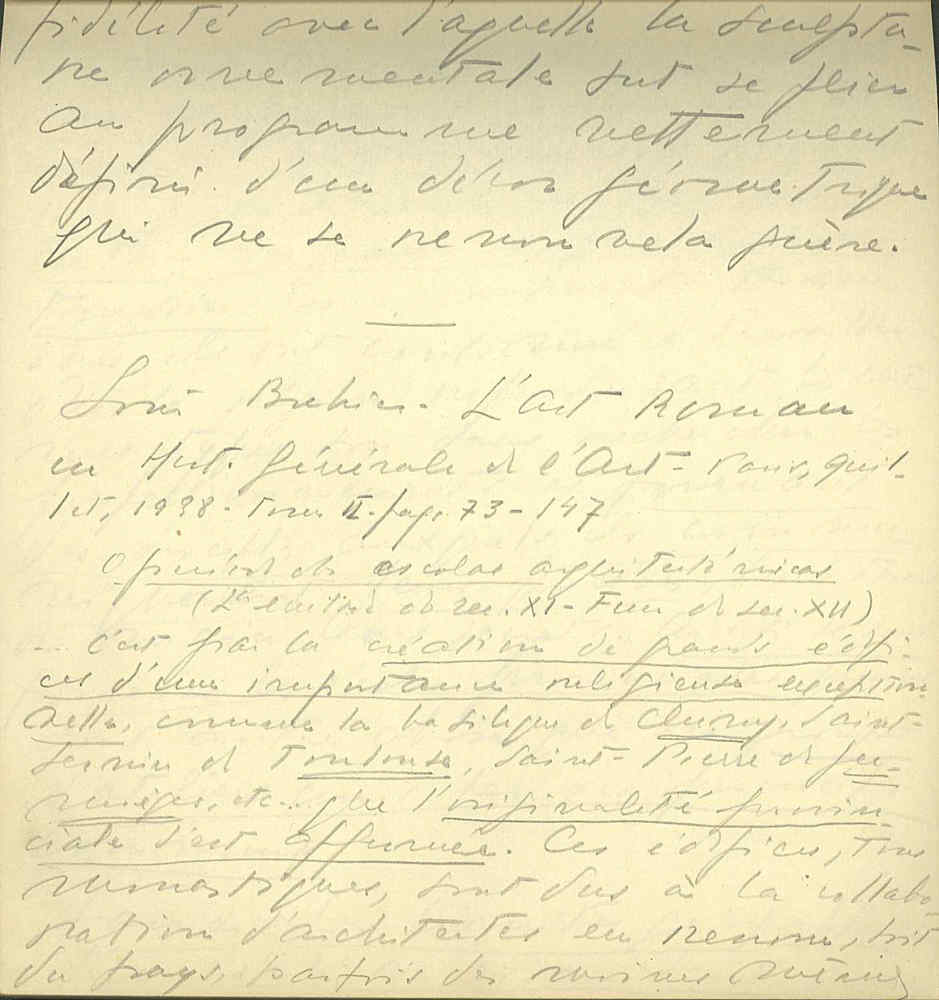 fidélité avec laquelle la sculptu-
re ornementale sut se plier
au programme nettement
défini d'un décor géométrique
qui ne se renouvela guère.
Louis Bréhier. L'Art Roman
en Hist. Générale de l'Art - Paris, Quil-
let, 1938 - Tome II. pag. 73 - 147
de escolas arquitectónicas
de sec. XI - Fim do sec. XII)
... c'est par la création de grands édifi-
ces d'une importance religieuse exception-
nelle, comme la basilique de Cluny, Saint-
Sernin de Toulouse, Saint-Pierre de Ju-
mièges, etc... que l'originalité provin-
ciale s'est affirmée. Ces édifices, tous
monastiques, sont dus à la collabo-
ration d'architectes en renom, soit
du pays, parfois des moines